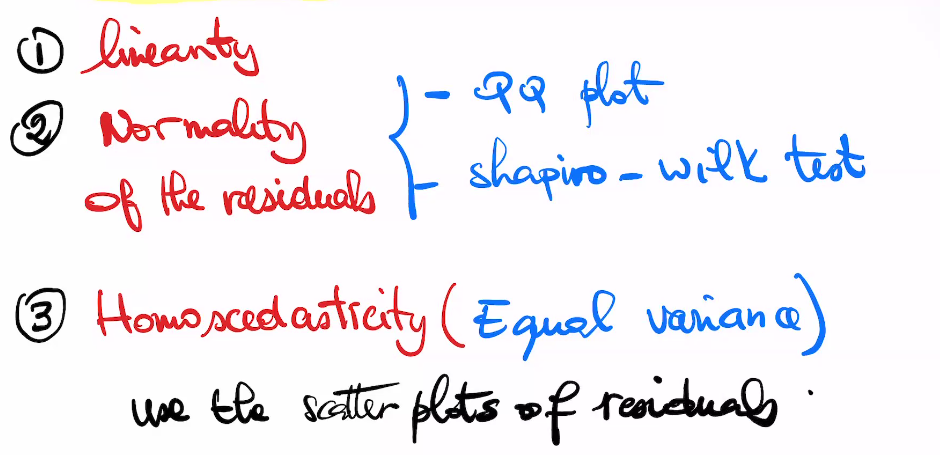 ① linearity
② Normality
of the residuals
- QQ plot
- shapiro - wilk test
③ Homoscedasticity (Equal variance)
use the scatter plots of residuals.